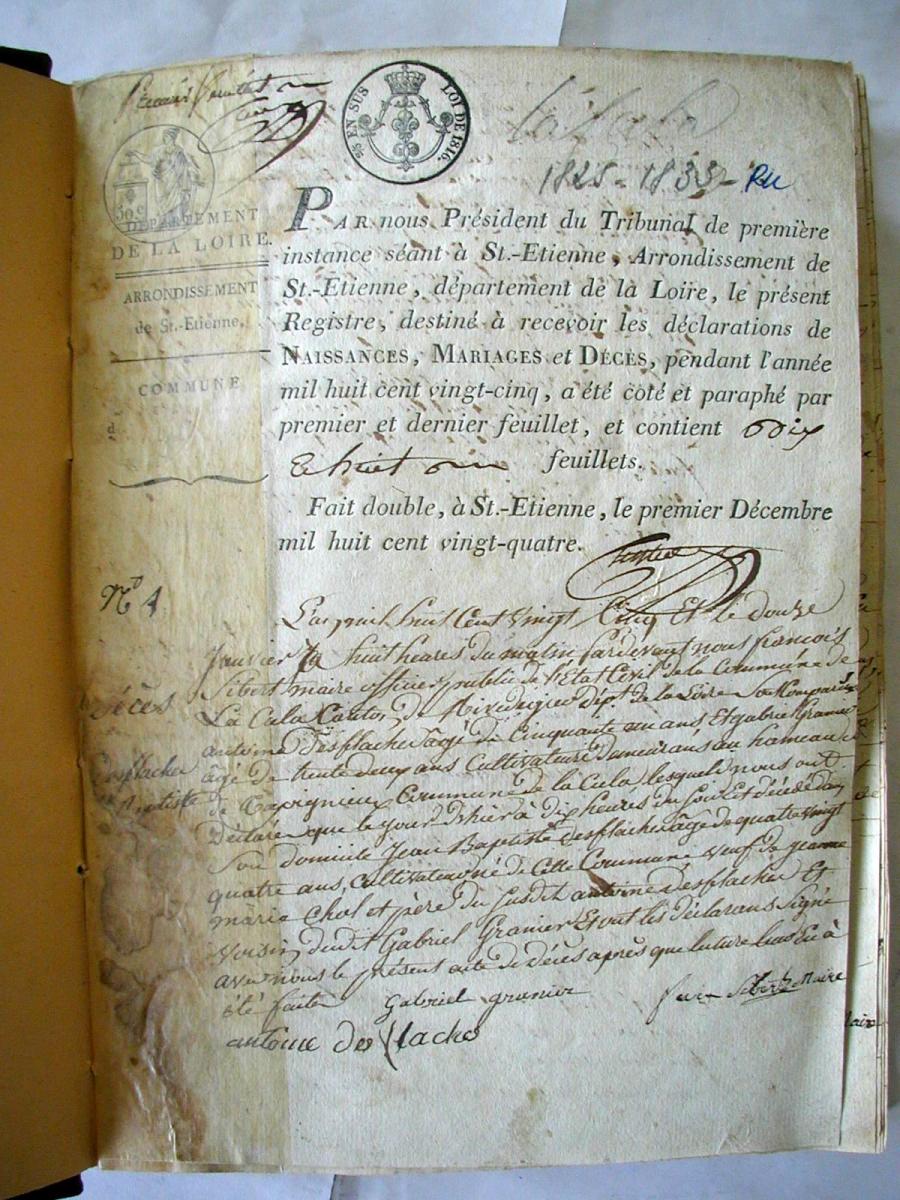 Premier feuillet
2/10 EN SUS LOI DE 1816.
La Cula
1825 - 1833 - RM
50 c
DÉPARTEMENT
DE LA LOIRE.
ARRONDISSEMENT
de St.-Etienne.
COMMUNE
d
PAR nous Président du Tribunal de première
instance séant à St.-Etienne, Arrondissement de
St.-Etienne, département de la Loire, le présent
Registre, destiné à recevoir les déclarations de
NAISSANCES, MARIAGES et DÉCÈS, pendant l'année
mil huit cent vingt-cinq, a été coté et paraphé par
premier et dernier feuillet, et contient dix
& huit feuillets.
Fait double, à St.-Etienne, le premier Décembre
mil huit cent vingt-quatre.
No 1
Décès
Desflaches
Baptiste
L'an mil huit Cent vingt Cinq Et le douze
Janvier à huit heures du matin Pardevant nous françois
Sibert maire officier public de l'Etat Civil de la Commune de
La Cula Canton de Rivedegier Dépt. de la Loire Sont Comparus
antoine Desflaches âgé de Cinquante un ans Et gabriel Granier
âgé de trente deux ans Cultivateurs Demeurans au hameau
de Commune de la Cula, lesquels nous ont
Déclaré que le jour D'hier à dix heures du Soir Est décédé dans
Son domicile Jean Baptiste Desflaches âgé de quatre vingt
quatre ans, Cultivateur né de Cette Commune veuf de jeanne
marie Chol et père du Susdit antoine Desflaches Et
voisin dudit Gabriel Granier Et ont les déclarans Signé
avec nous le présent acte de décès après que lecture leur En à
été faite Gabriel granier Sibert Maire
antoine des flaches